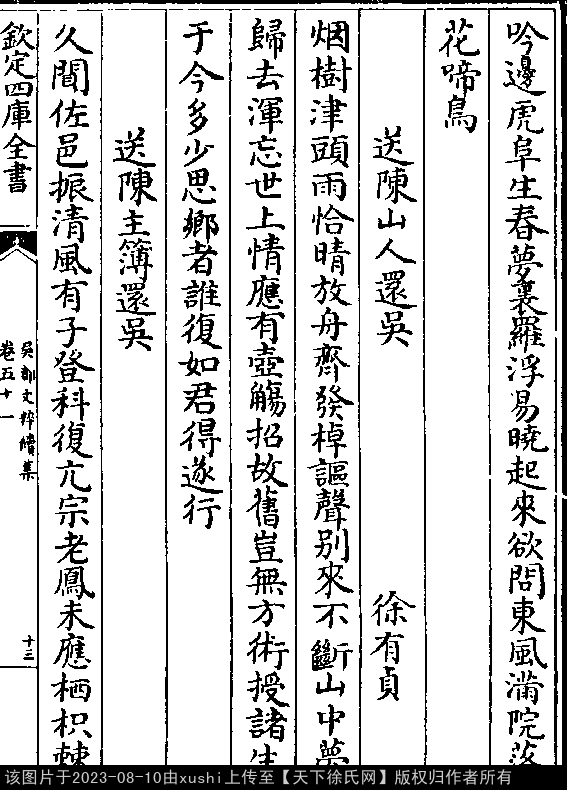 吟邊虎阜生春夢裏羅浮易曉起來欲問東風滿院落
花啼鳥
送陳山人還吳 徐有貞
烟樹津頭雨恰晴放舟齊發棹謳聲别來不斷山中夢
歸去渾忘世上情應有壺觴招故舊豈無方術授諸生
于今多少思鄉者誰復如君得遂行
送陳主簿還吳
久聞佐邑振清風有子登科復亢宗老鳳未應栖枳棘
欽定四庫全書
吳都文粹續集
卷五十一
十三
该图片于2023-08-10由xushi上传至【天下徐氏网】版权归作者所有